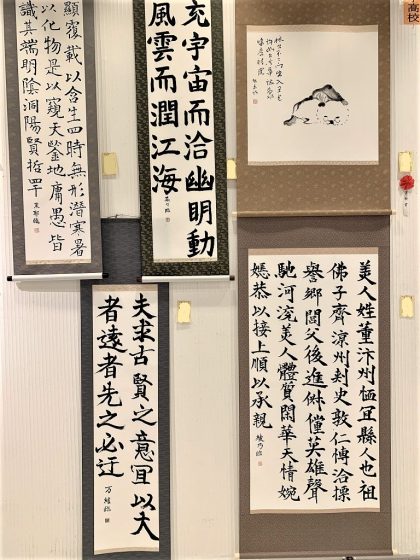 高校
充宇宙而洽幽明動
風雲而潤江海
顯覆載以含生四時無形潛寒暑
以化物是以窺天鑒地庸愚皆
識其端明陰洞陽賢哲罕
美人姓董汴州恤宜縣人也祖
佛子齊涼州刾史敦仁愽洽摽
譽鄉閭父後進俶儻英雄聲
馳河浣美人體質閑華天情婉
嫕恭以接上順以承親
夫求古賢之意宜以大
者遠者先之必迂